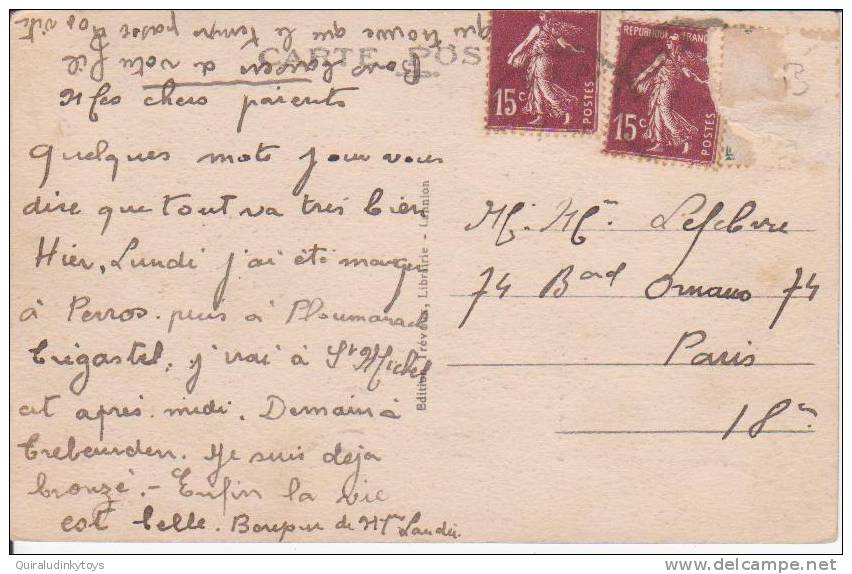 CARTE POS
Mes chers parents
Quelques mots pour vous
dire que tout va très bien
Hier, Lundi j'ai été manger
à Perros. puis à Ploumanach
Trégastel, j'irai à St Michel
cet après-midi. Demain à
Trebeurden. Je suis déja
bronzé. - Enfin la vie
est belle. Bonjour de Mme
Bons baisers à votre fils
qui trouve que le temps passe trop vite
15c POSTES
REPUBLIQUE FRANC
15c POSTES
B
M. Mme Lefebvre
74 Bard Ornano 74
Paris
18e
Edition Trévoux, Librairie - Lannion
Quiraludinkytoys
delcampe.net